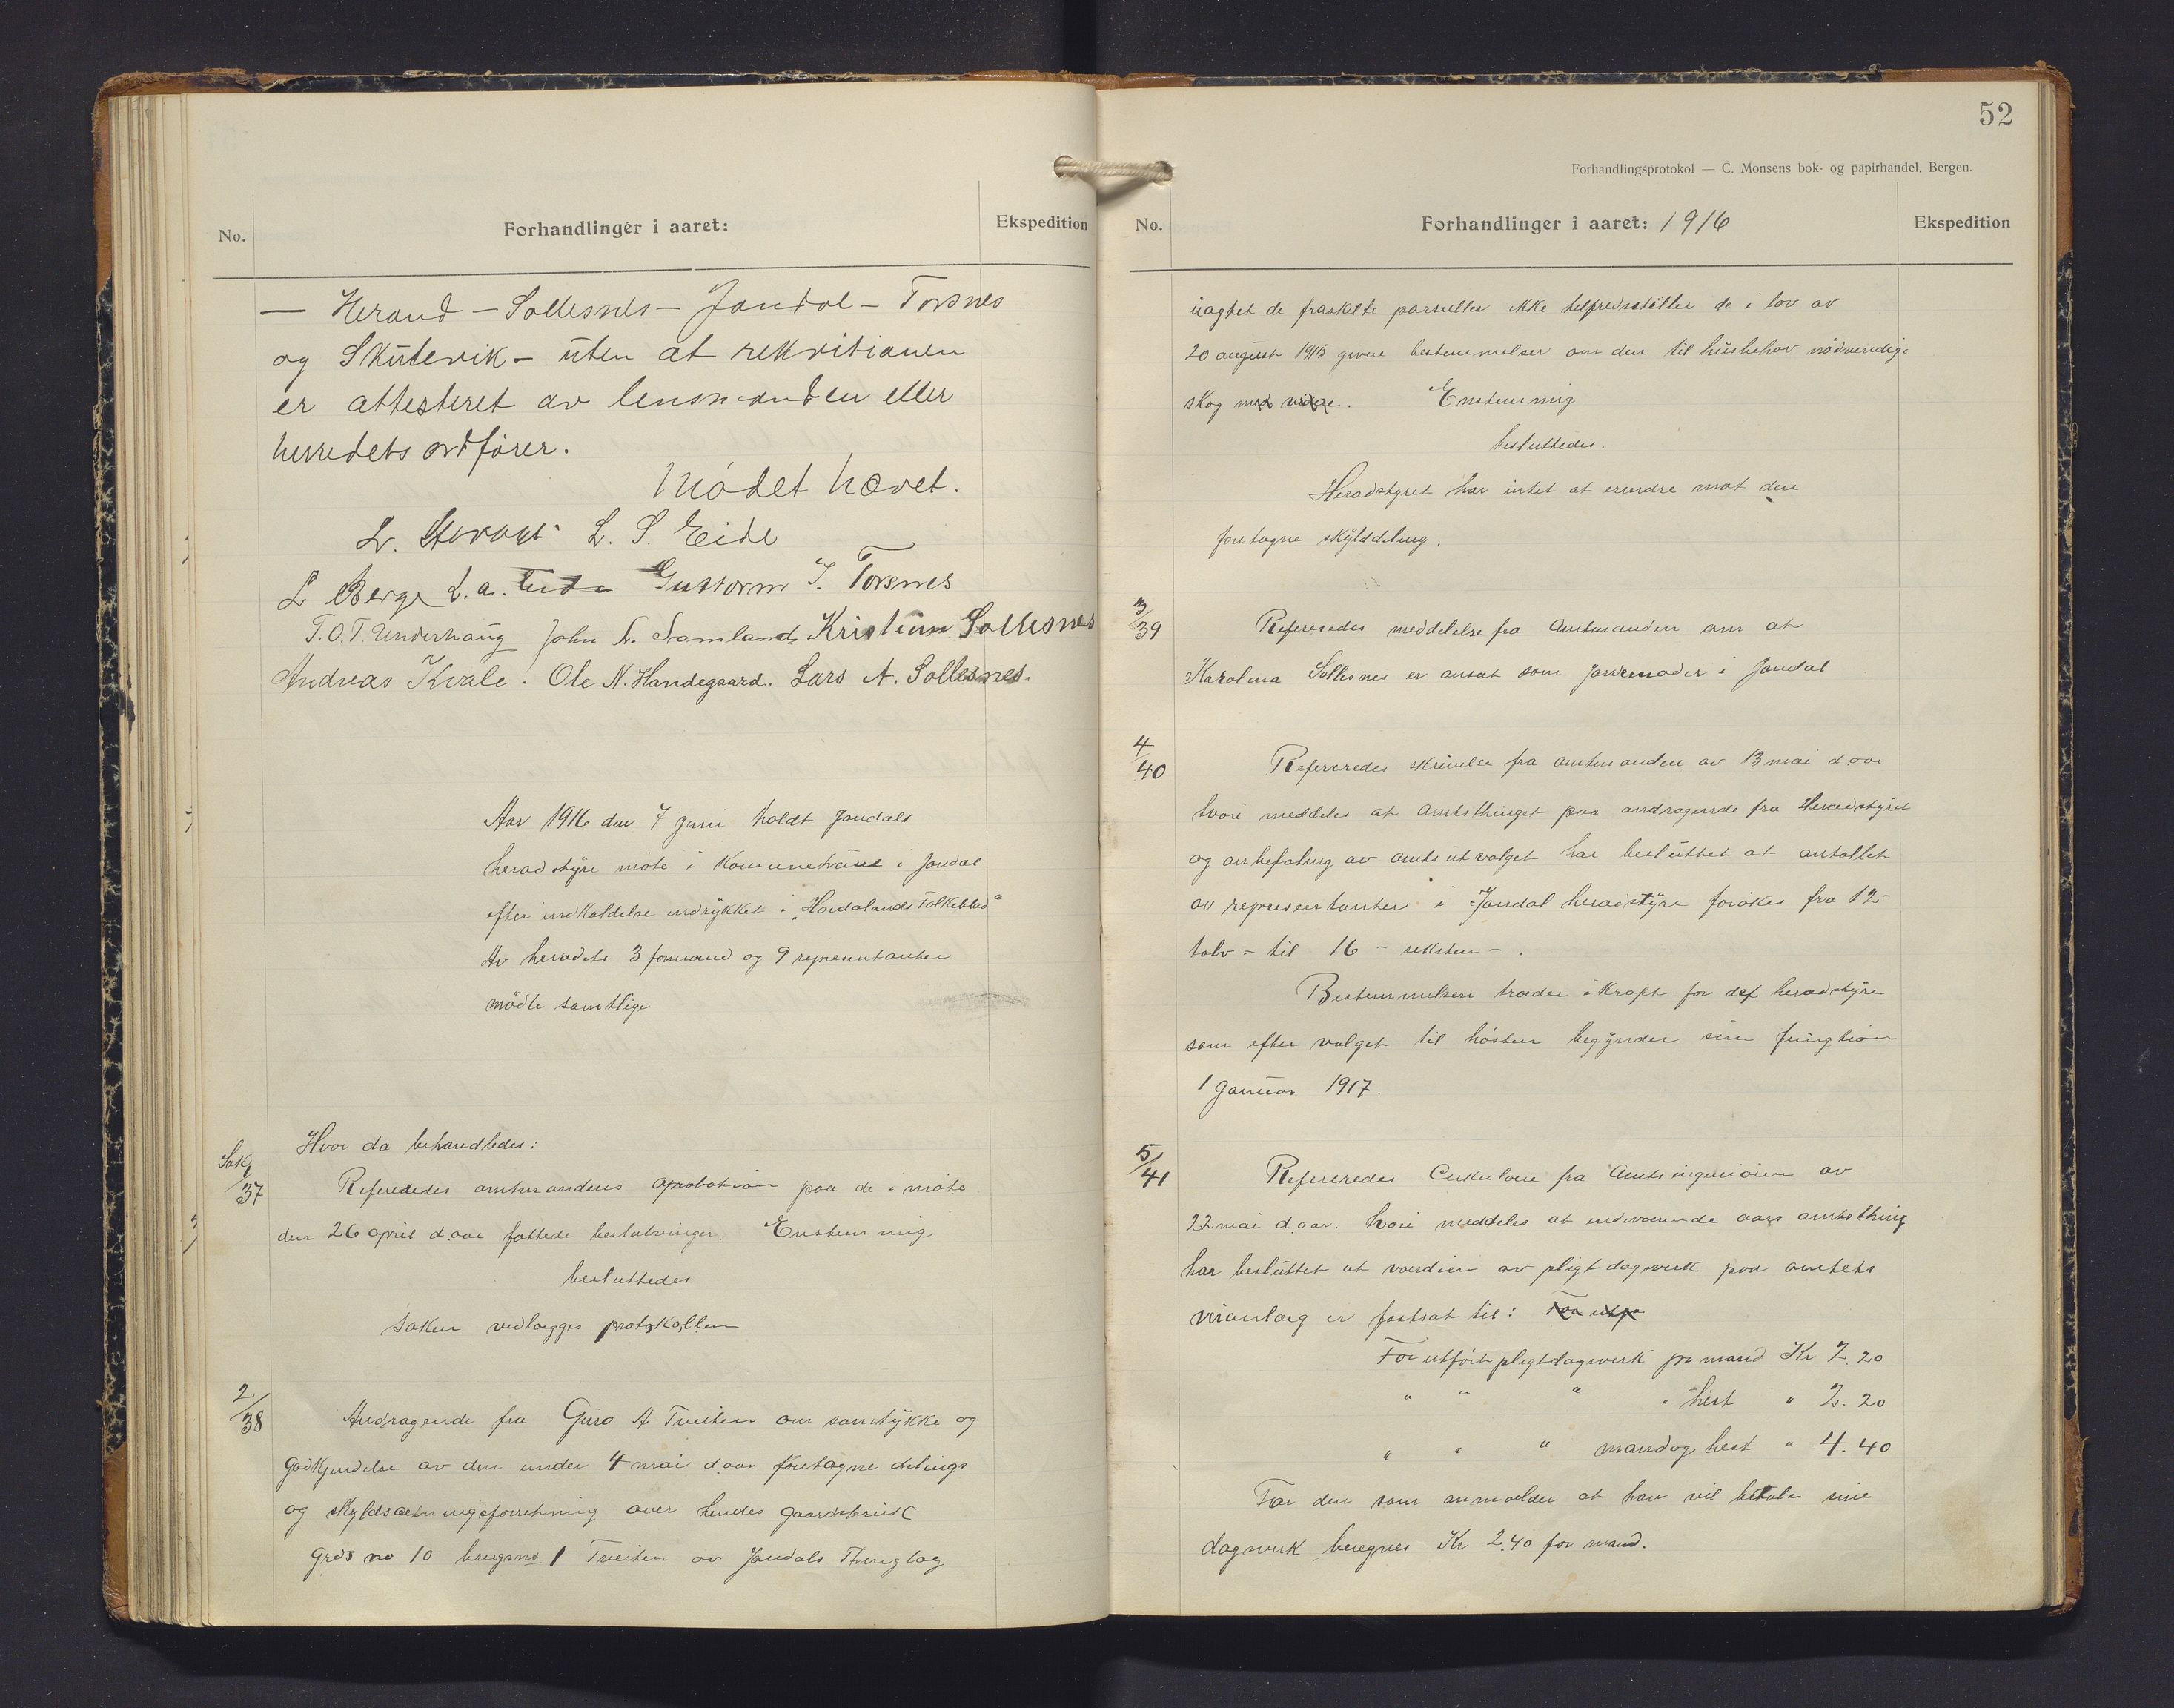 No.
Forhandlinger i aaret:
Ekspedition
— Herand – Sollesnes – Jondal – Torsnes
og Skutevik – uten at rekvisitionen
er attesteret av lensmanden eller
herredets ordfører.
Mødet hævet.
L. Herand L. S. Eide
L Berge L. A. Guttorm J. Torsnes
T. O. T. Underhaug John L. Samland Kristian Sollesnes
Andreas Kvale. Ole N. Handegaard. Lars A. Sollesnes.
Aar 1916 den 7 juni holdt Jondals
heradstyre møte i Komunehuset i Jondal
efter indkaldelse indrykket i "Hordalands Folkeblad"
Av heradets 3 formænd og 9 representanter
mødte samtlige
Hvor da behandledes:
Sak 1/37
Refereredes amtmandens aprobation paa de i møte
den 26 april d.aar fattede beslutninger. Enstemmig
besluttedes
Saken vedlægges protokollen
2/38
Andragende fra Guro A Tveiten om samtykke og
godkjendelse av den under 4 mai d.aar foretagne delings
og skyldsætningsforretning over hendes gaardsbruk
Grds no 10 brugsno 1 Tveiten av Jondals Thinglag
52
Forhandlingsprotokol — C. Monsens bok- og papirhandel, Bergen.
No.
Forhandlinger i aaret: 1916
Ekspedition
uagtet de fraskilte parseller ikke tilfredsstiller de i lov av
20 august 1915 givne bestemmelser om den til husbehov nødvendige
skog med videre. Enstemmig
besluttedes.
Heradstyret har intet at erindre mot den
foretagne skylddeling.
3/39
Refereredes meddelelse fra Amtmanden om at
Karolina Sollesnes er ansat som jordemoder i Jondal
4/40
Refereredes skrivelse fra amtmanden av 13 mai d aar
hvori meddeles at Amtsthinget paa andragende fra Heradstyret
og anbefaling av amtsutvalget har besluttet at antallet
av representanter i Jondal heradstyre forøkes fra 12 –
tolv – til 16 – seksten – .
Bestemmelsen træder i kraft for det heradstyre
som efter valget til høsten begynder sin fungtion
1 Januar 1917.
5/41
Refereredes Cirkulære fra Amtsingeniøren av
22 mai d.aar. hvori meddeles at indeværende aars amtsthing
har besluttet at værdien av pligtdagsverk paa amtets
veianlæg er fastsat til: For utfø
For utført pligtdagsverk pr mand Kr 2.20
" " " " hest " 2.20
" " " mand og hest " 4.40
For den som anmelder at han vil betale sine
dagsverk beregnes Kr 2.40 for mand.